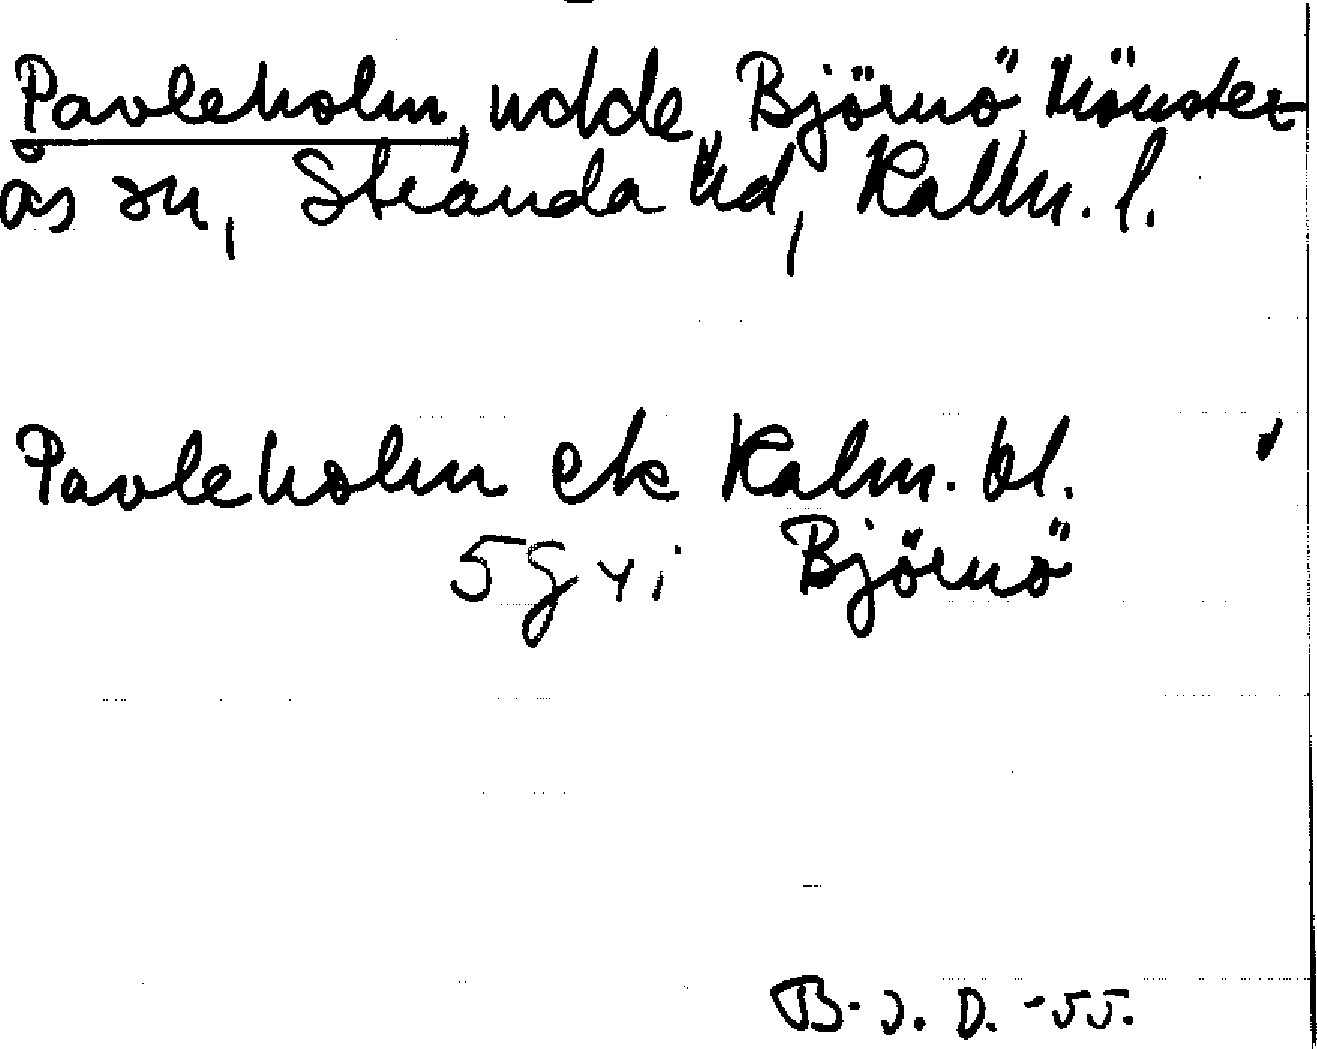 Pavleholm, udde, Björnö Hönster
ås sn, Stranda hd, Kalm. l.
Pavleholm ek Kalm. bl.
5 g y i Björnö
B. J. D. -55.